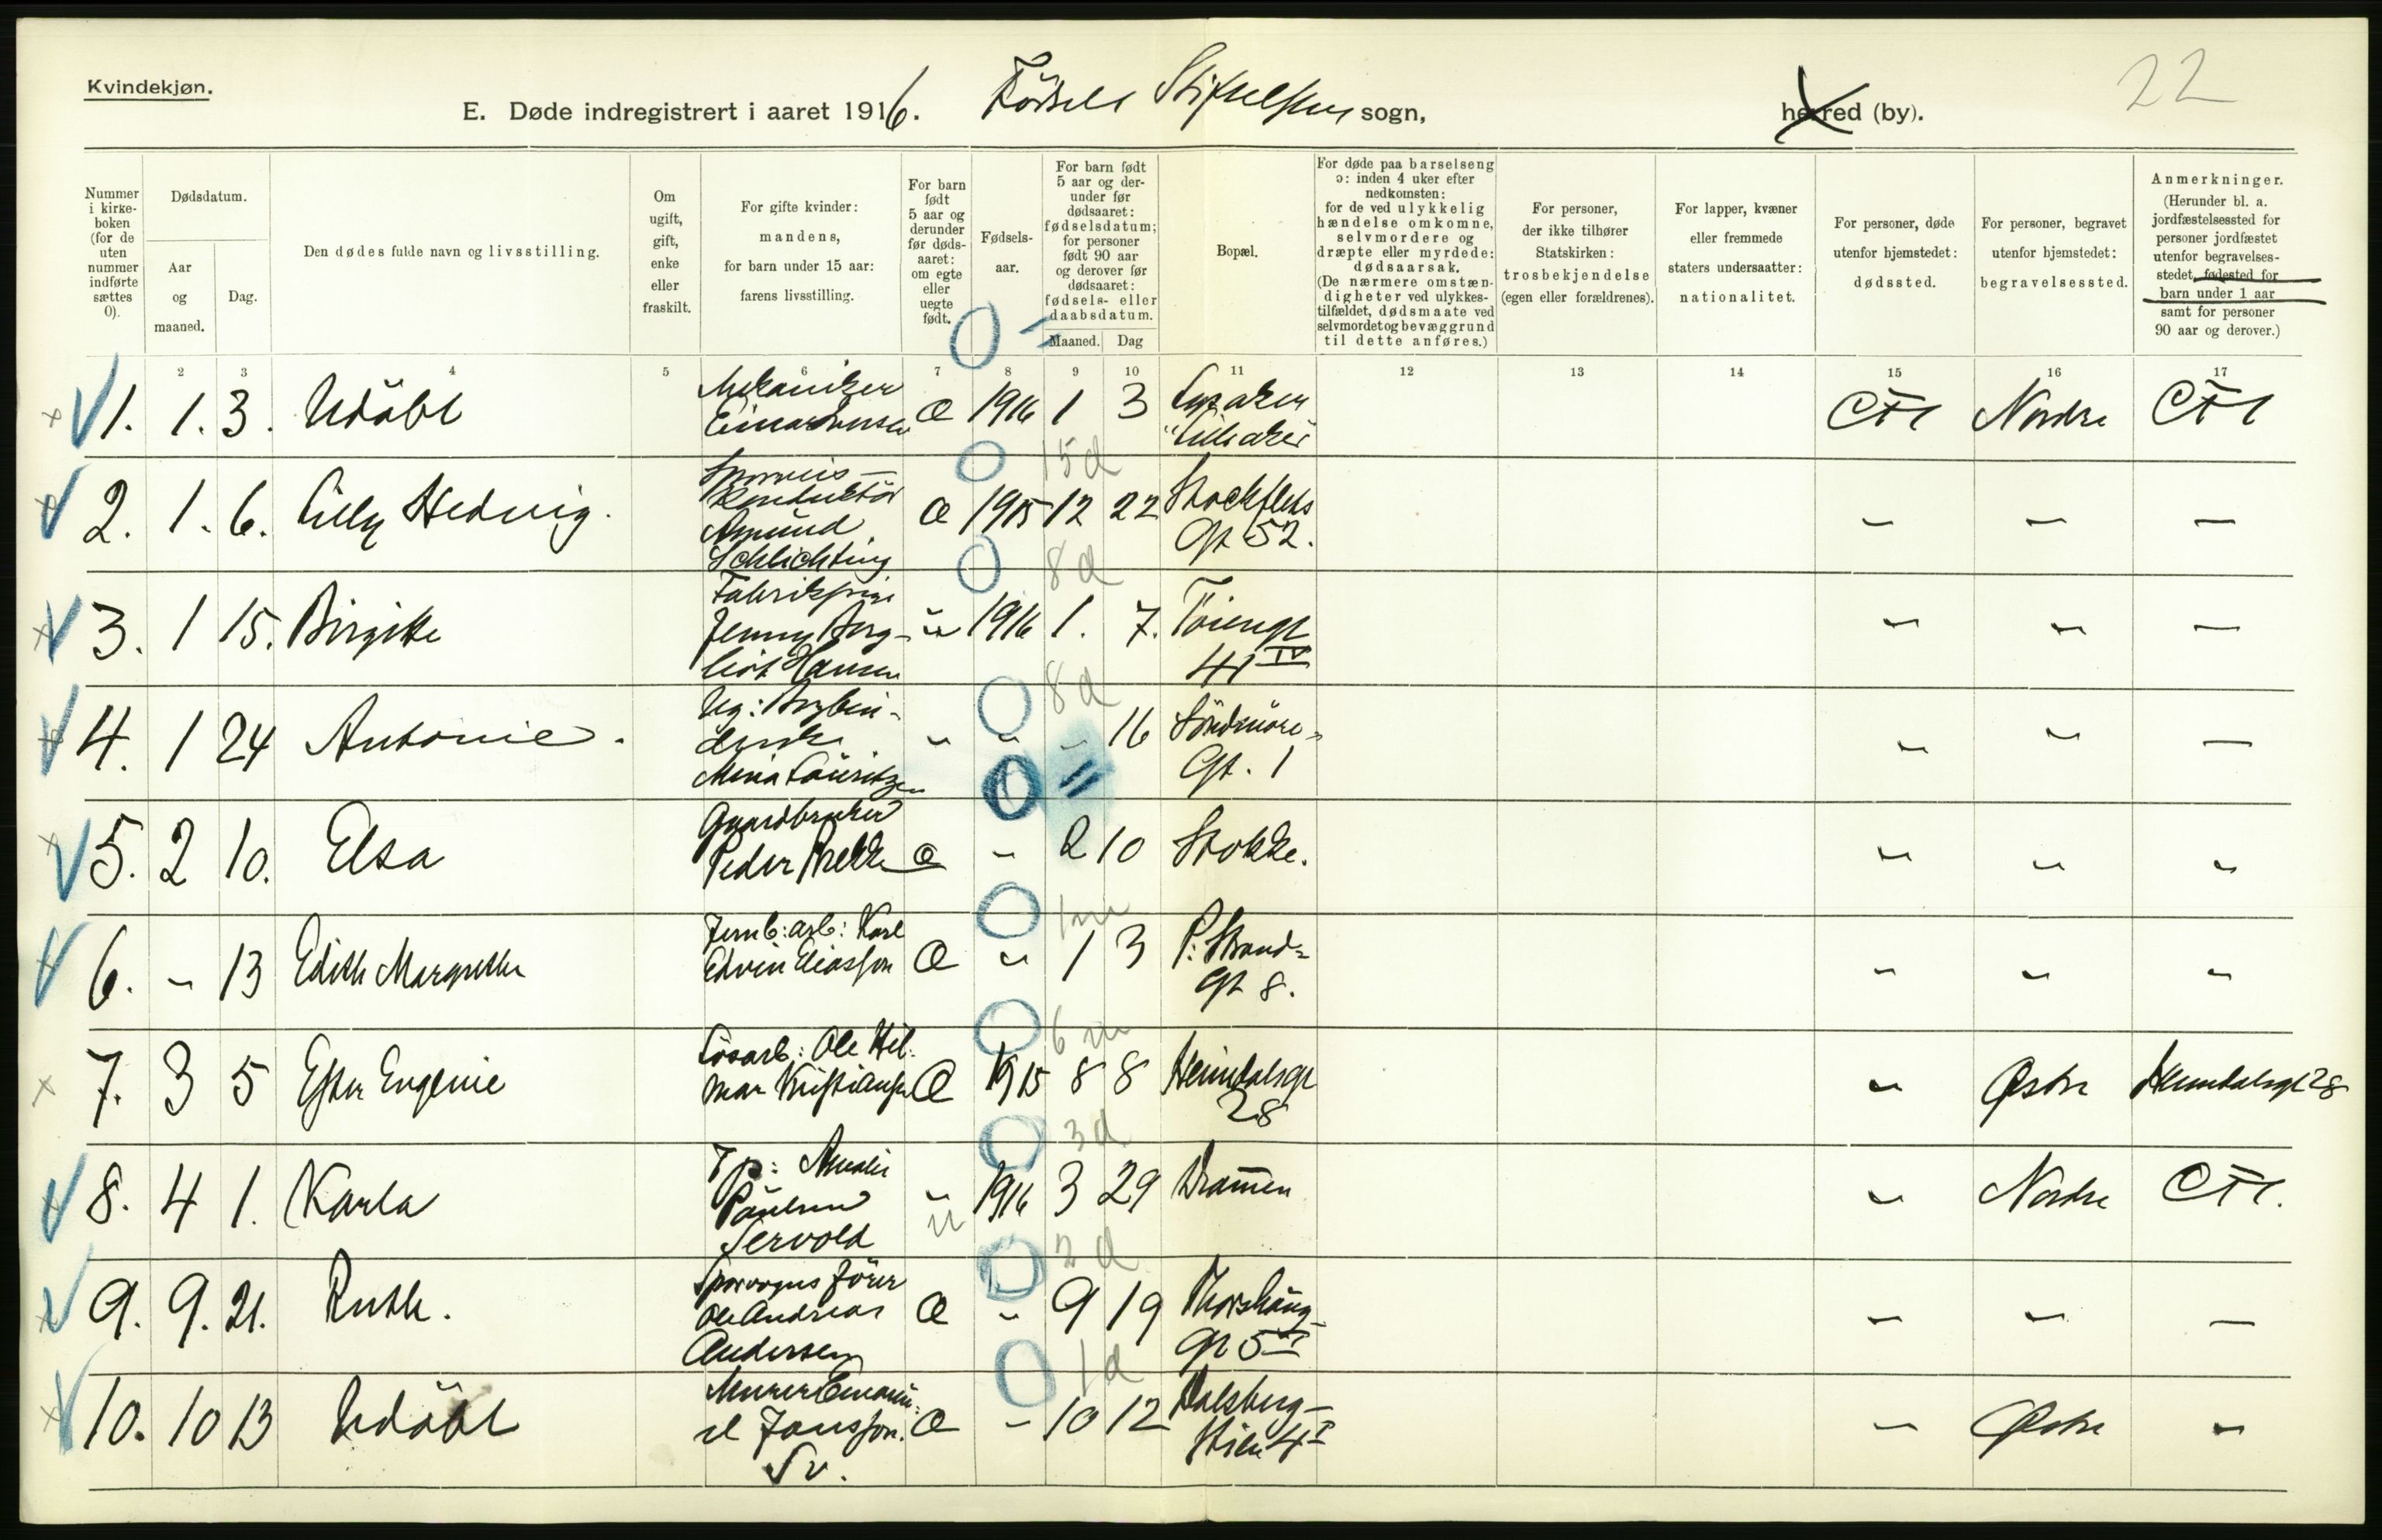 Kvindekjøn.
22
E. Døde indregistrert i aaret 1916. Fødsels Stiftelsens sogn, herred (by).
Nummer i kirke-boken (for de uten nummer indførte sættes 0).
Dødsdatum.
Aar og maaned.
Dag.
Den dødes fulde navn og livsstilling.
Om ugift, gift, enke eller fraskilt.
For gifte kvinder: mandens, for barn under 15 aar: farens livsstilling.
For barn født 5 aar og derunder før døds-aaret: om egte eller uegte født.
Fødsels-aar.
For barn født 5 aar og der-under før dødsaaret: fødselsdatum; for personer født 90 aar og derover før dødsaaret: fødsels- eller daabsdatum.
Maaned. Dag
Bopæl.
For døde paa barselseng ɔ: inden 4 uker efter nedkomsten: for de ved ulykkelig hændelse omkomne, selvmordere og dræpte eller myrdede: dødsaarsak. (De nærmere omstæn-digheter ved ulykkes-tilfældet, dødsmaate ved selvmordet og bevæggrund til dette anføres.)
For personer, der ikke tilhører Statskirken: trosbekjendelse (egen eller forældrenes).
For lapper, kvæner eller fremmede staters undersaatter: nationalitet.
For personer, døde utenfor hjemstedet: dødssted.
For personer, begravet utenfor hjemstedet: begravelsessted.
Anmerkninger. (Herunder bl. a. jordfæstelsessted for personer jordfæstet utenfor begravelses-stedet, fødested for barn under 1 aar samt for personer 90 aar og derover.)
2 3 4 5 6 7 8 9 10 11 12 13 14 15 16 17
0 =
1. 1. 3. Udøbt Mekaniker Einar Æ 1916 1 3 Lysaker "Lilleaker" Nordre
0 15d
2. 1. 6. Lilly Hedvig. Sporveis-Konduktør Amund Schlichting Æ 1915 12 22 Stockfleths Gt 52. – – –
0 8d
3. 1 15. Birgitte Fabrikpige Jenny Berg-liot Hansen u 1916 1. 7. Tøiengt 41 IV " " –
0 8d
4. 1 24 Antonie. Ug: Arbei-derske Mina Lauritzen " " " 16 Søndmøre-Gt. 1 " " –
0 =
5. 2 10. Elsa Gaardbruker Peder Æ " 2 10 Stokke. " " "
0 1m
6. " 13 Edith Margrethe Jernb: arb: Karl Edvin Eliasson Æ " 1 3 P. Strand-gt 8. " " "
0 6m
7. 3 5 Ester Eugenie Løsarb: Ole Hil-mar Kristiansen Æ 1915 8 8 Heimdalsgt 28 " Østre Heimdalsgt 28
0 3d
8. 4 1. Karla Tp: Amalie Paulsen Servold " u 1916 3 29 Drammen " Nordre
0 2d
9. 9. 21. Ruth. Sporvognsfører Ole Andreas Andersen Æ " 9 19 Thorshaug-gt 5 " " –
0 1d
10. 10 13 Udøbt Murer Emanu-el Jansson. Sv. Æ " 10 12 Dalsberg-stien 4 I " Østre "